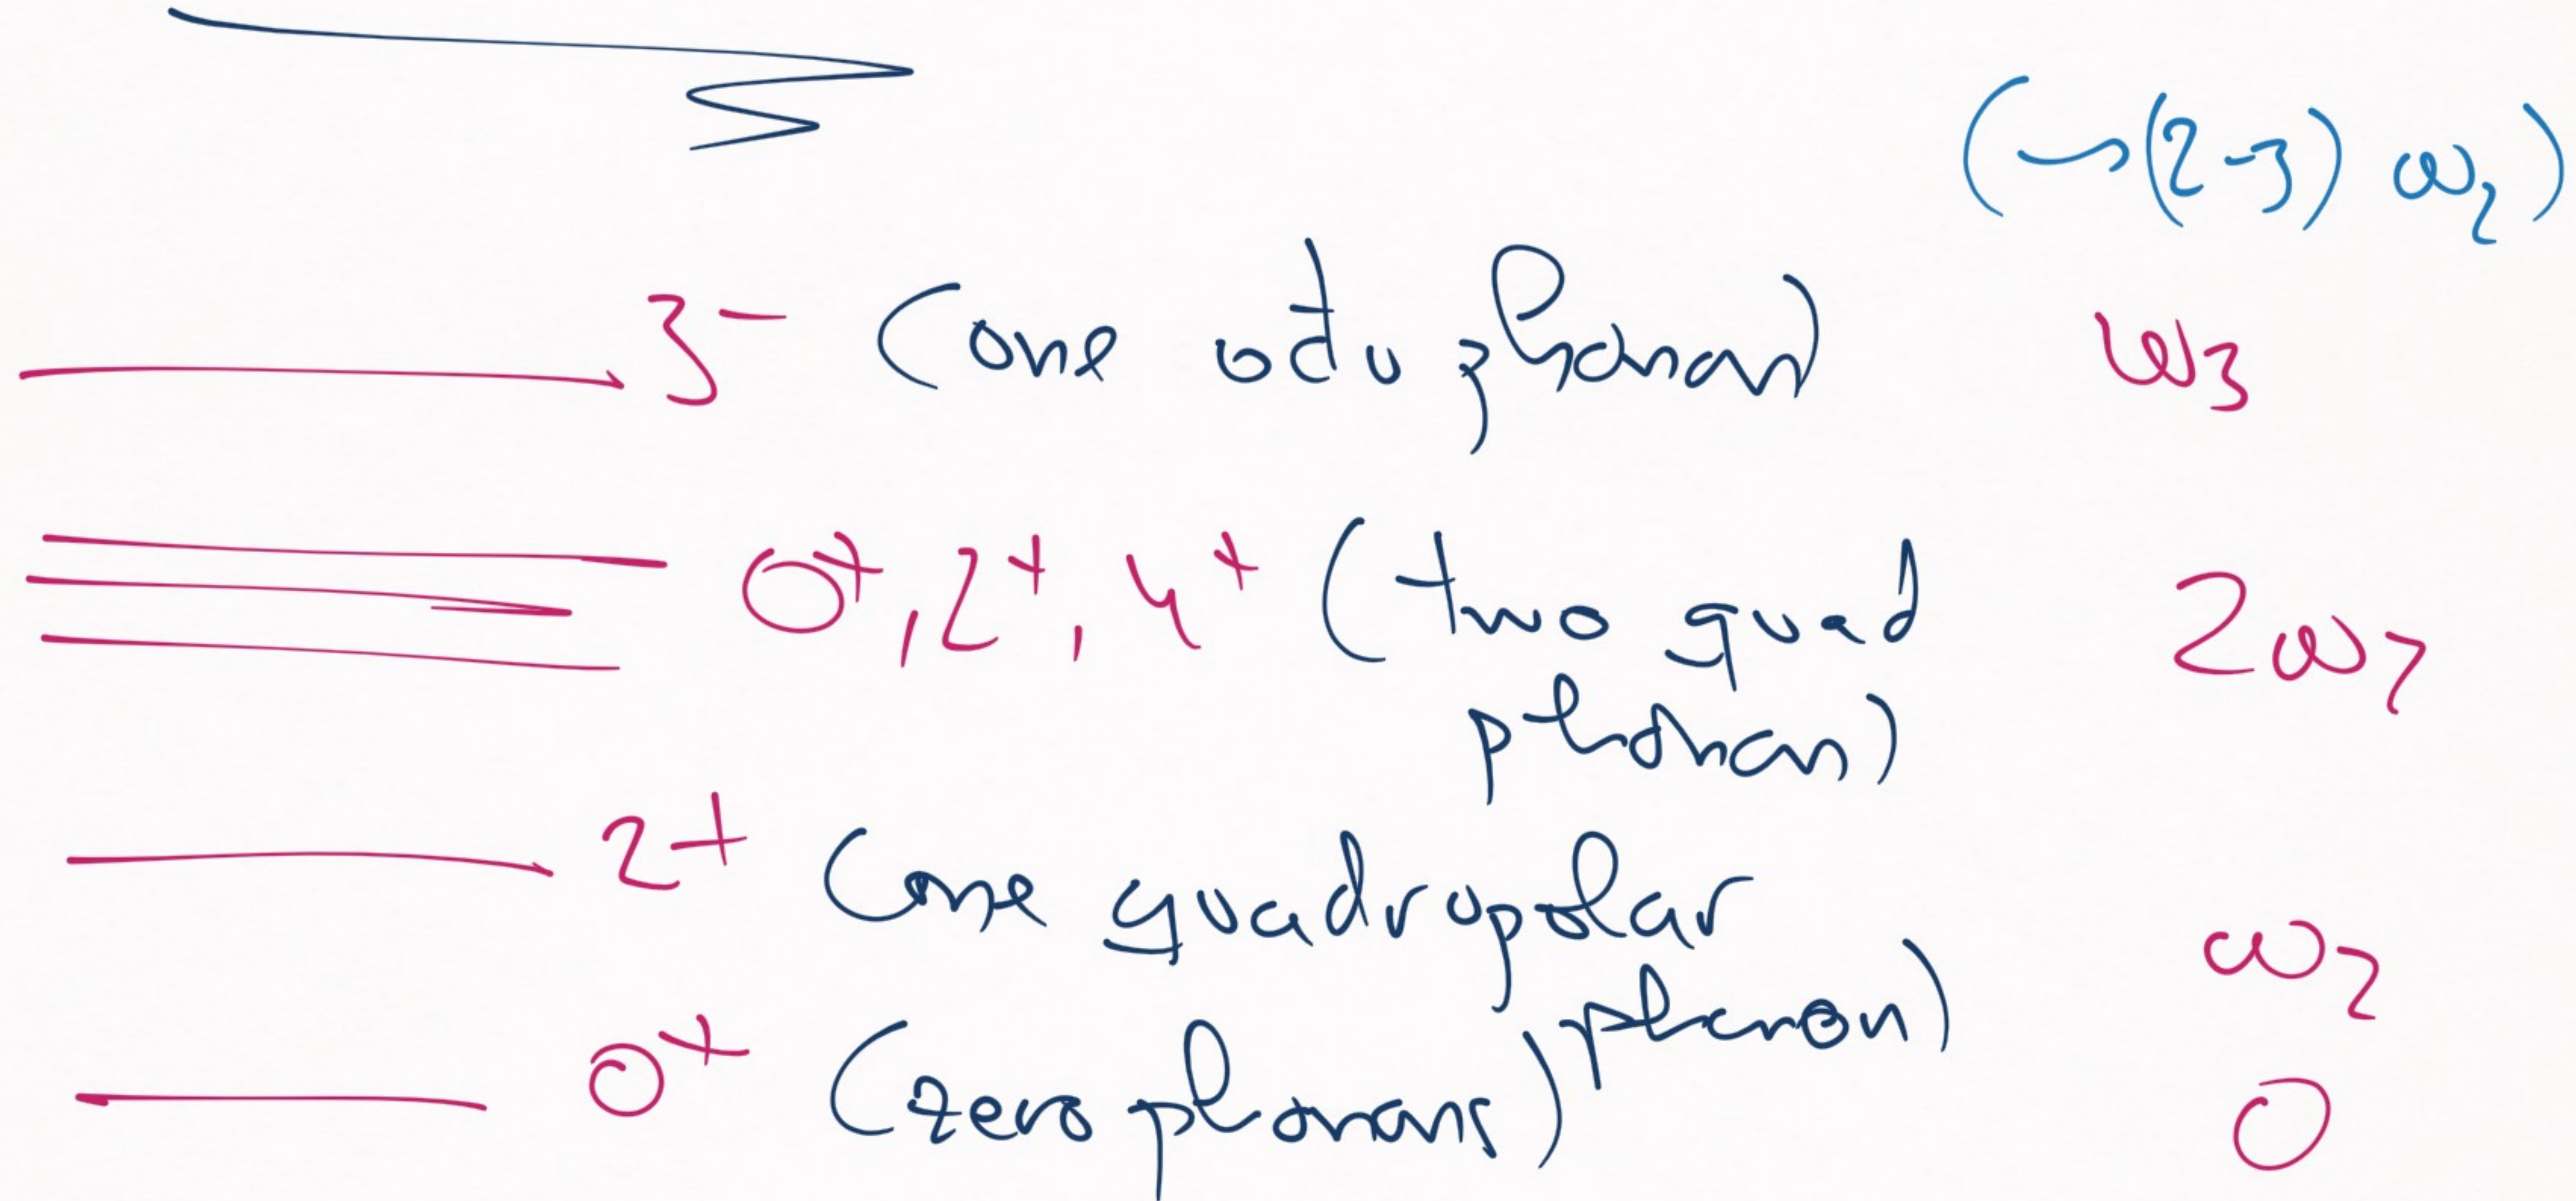 (~(2-3) ω₂)
3⁻ (one octu phonon) ω₃
0⁺, 2⁺, 4⁺ (two quad 2ω₂
phonon)
2⁺ (one quadrupolar ω₂
phonon)
0⁺ (zero phonons) 0